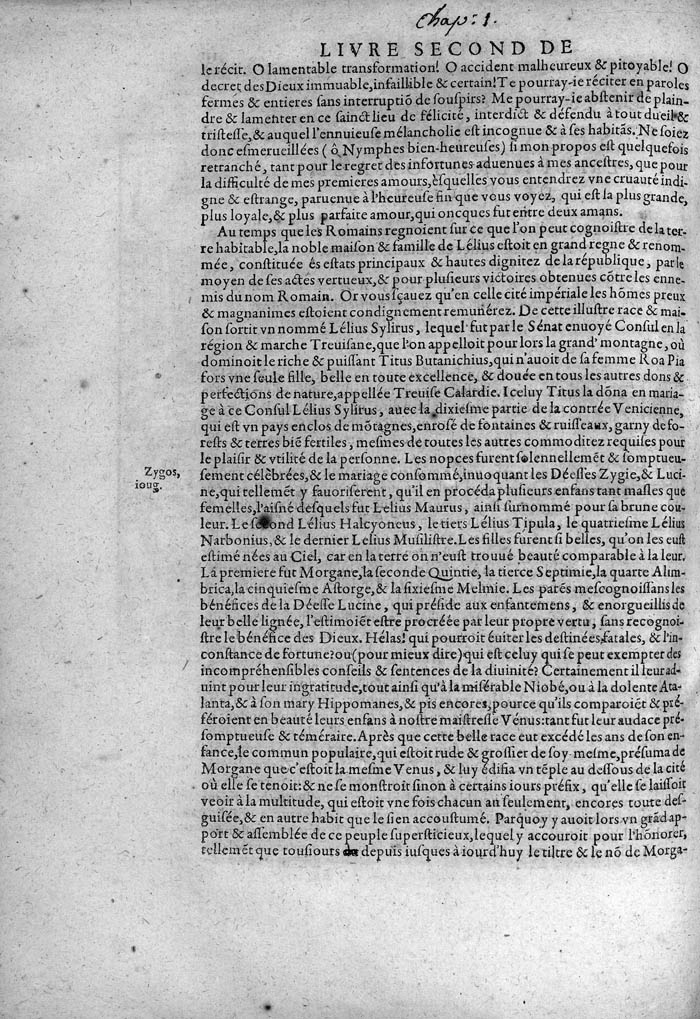 Chap: 1.
LIVRE SECOND DE
le récit. O lamentable transformation! O accident malheureux & pitoyable! O
decret des Dieux immuable, infaillible & certain! Te pourray-ie réciter en paroles
fermes & entieres sans interruptiõ de souspirs? Me pourray-ie abstenir de plain-
dre & lamenter en ce sainct lieu de félicité, interdict & défendu à tout dueil &
tristesse, & auquel l'ennuieuse mélancholie est incognue & à ses habitãs. Ne soiez
donc esmerueillées (ô Nymphes bien-heureuses) si mon propos est quelquefois
retranché, tant pour le regret des infortunes aduenues à mes ancestres, que pour
la difficulté de mes premieres amours, èsquelles vous entendrez vne cruauté indi-
gne & estrange, paruenue à l'heureuse fin que vous voyez, qui est la plus grande,
plus loyale, & plus parfaite amour, qui oncques fut entre deux amans.
Au temps que les Romains regnoient sur ce que l'on peut cognoistre de la ter-
re habitable, la noble maison & famille de Lélius estoit en grand regne & renom-
mée, constituée és estats principaux & hautes dignitez de la république, par le
moyen de ses actes vertueux, & pour plusieurs victoires obtenues cõtre les enne-
mis du nom Romain. Or vous sçauez qu'en celle cité impériale les hõmes preux
& magnanimes estoient condignement remunérez. De cette illustre race & mai-
son sortit vn nommé Lélius Sylirus, lequel fut par le Sénat enuoyé Consul en la
région & marche Treuisane, que l'on appelloit pour lors la grand' montagne, où
dominoit le riche & puissant Titus Butanichius, qui n'auoit de sa femme Roa Pia
fors vne seule fille, belle en toute excellence, & douée en tous les autres dons &
perfections de nature, appellée Treuise Calardie. Iceluy Titus la dõna en maria-
ge à ce Consul Lélius Sylirus, auec la dixiesme partie de la contrée Venicienne,
qui est vn pays enclos de mõtagnes, enrosé de fontaines & ruisseaux, garny de fo-
rests & terres biẽ fertiles, mesmes de toutes les autres commoditez requises pour
le plaisir & vtilité de la personne. Les nopces furent solennellemẽt & somptueu-
sement célébrées, & le mariage consommé, inuoquant les Déesses Zygie, & Luci-
Zygos,
ioug.
ne, qui tellemẽt y fauoriserent, qu'il en procéda plusieurs enfans tant masles que
femelles, l'aisné desquels fut Lelius Maurus, ainsi surnommé pour sa brune cou-
leur. Le second Lélius Halcyoneus, le tiers Lélius Tipula, le quatriesme Lélius
Narbonius, & le dernier Lelius Musilistre. Les filles furent si belles, qu'on les eust
estimé nées au Ciel, car en la terre on n'eust trouué beauté comparable à la leur.
La premiere fut Morgane, la seconde Quintie, la tierce Septimie, la quarte Alim-
brica, la cinquiesme Astorge, & la sixiesme Melmie. Les parẽs mescognoissans les
bénéfices de la Déesse Lucine, qui préside aux enfantemens, & enorgueillis de
leur belle lignée, l'estimoiẽt estre procréée par leur propre vertu, sans recognoi-
stre le bénéfice des Dieux. Hélas! qui pourroit éuiter les destinées fatales, & l'in-
constance de fortune? ou (pour mieux dire) qui est celuy qui se peut exempter des
incompréhensibles conseils & sentences de la diuinité? Certainement il leur ad-
uint pour leur ingratitude, tout ainsi qu'à la misérable Niobé, ou à la dolente Ata-
lanta, & à son mary Hippomanes, & pis encores, pource qu'ils comparoiẽt & pré-
féroient en beauté leurs enfans à nostre maistresse Vénus: tant fut leur audace pré-
somptueuse & téméraire. Après que cette belle race eut excédé les ans de son en-
fance, le commun populaire, qui estoit rude & grossier de soy-mesme, présuma de
Morgane que c'estoit la mesme Venus, & luy édifia vn tẽple au dessous de la cité
où elle se tenoit: & ne se monstroit sinon à certains iours préfix, qu'elle se laissoit
veoir à la multitude, qui estoit vne fois chacun an seulement, encores toute des-
guisée, & en autre habit que le sien accoustumé. Parquoy y auoit lors vn grãd ap-
port & assemblée de ce peuple supersticieux, lequel y accouroit pour l'hõnorer,
tellemẽt que tousiours depuis iusques à iourd'huy le tiltre & le nõ de Morga-